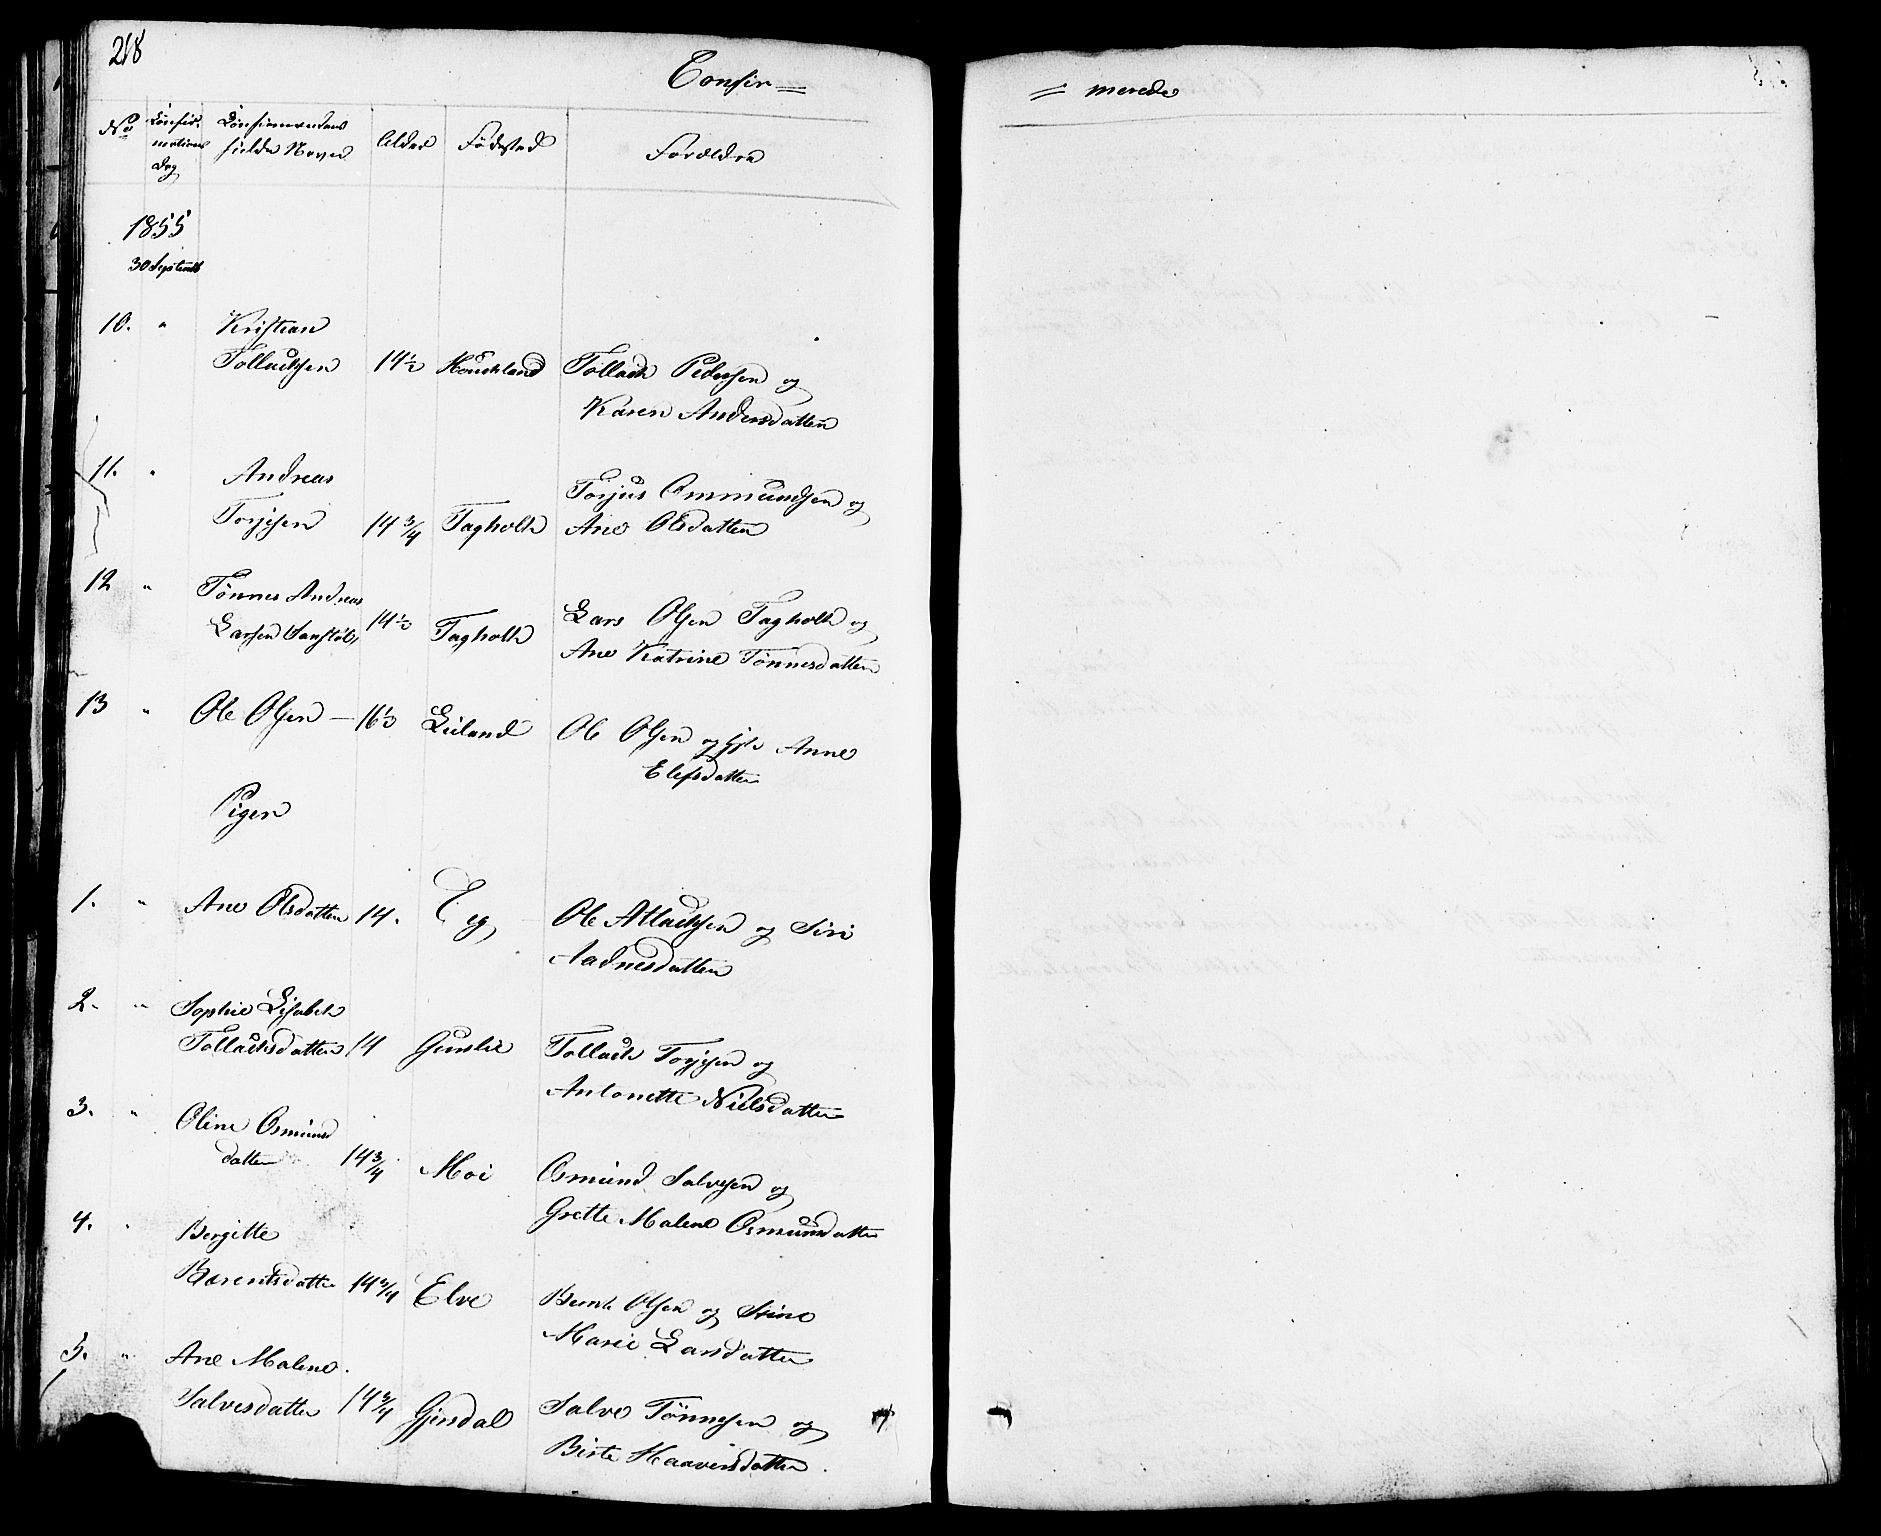 218
Confir=
= merede
No
Confir-
mations
Dag
Confirmandens
fulde Navn
Alder
Fødested
Forældre
1855
30 Septemb
10. " Kristian
Tollacksen 14½ Houckland Tollack Pedersen og
Karen Andersdatter
11. " Andreas
Torjesen 14¾ Tagholt Torjus Ommundsen og
Ane Olsdatter
12 " Tønnes Andreas
Larsen 14½ Tagholt Lars Olsen Tagholt og
Ane Katrine Tønnesdatter
13 " Ole Olsen — 16½ Leiland Ole Olsen og Anne
Elefsdatter
Piger
1. " Ane Olsdatter 14. Eeg Ole Atlacksen og Siri
Aadnesdatter
2. " Sophie Lisabeth
Tollacksdatter 14 Gunslie Tollack Torjesen og
Antonette Nielsdatter
3. " Oline Osmund
datter 14¾ Moi Osmund Salvesen og
Grette Malene Osmundsdatter
4. " Bergitte
Berentsdatter 14¾ Elve Bernt Olsen og Stine
Marie Larsdatter
5. " Ane Malene
Salvesdatter 14¾ Gjendal Salve Tønnesen og
Birte Haaversdatter.